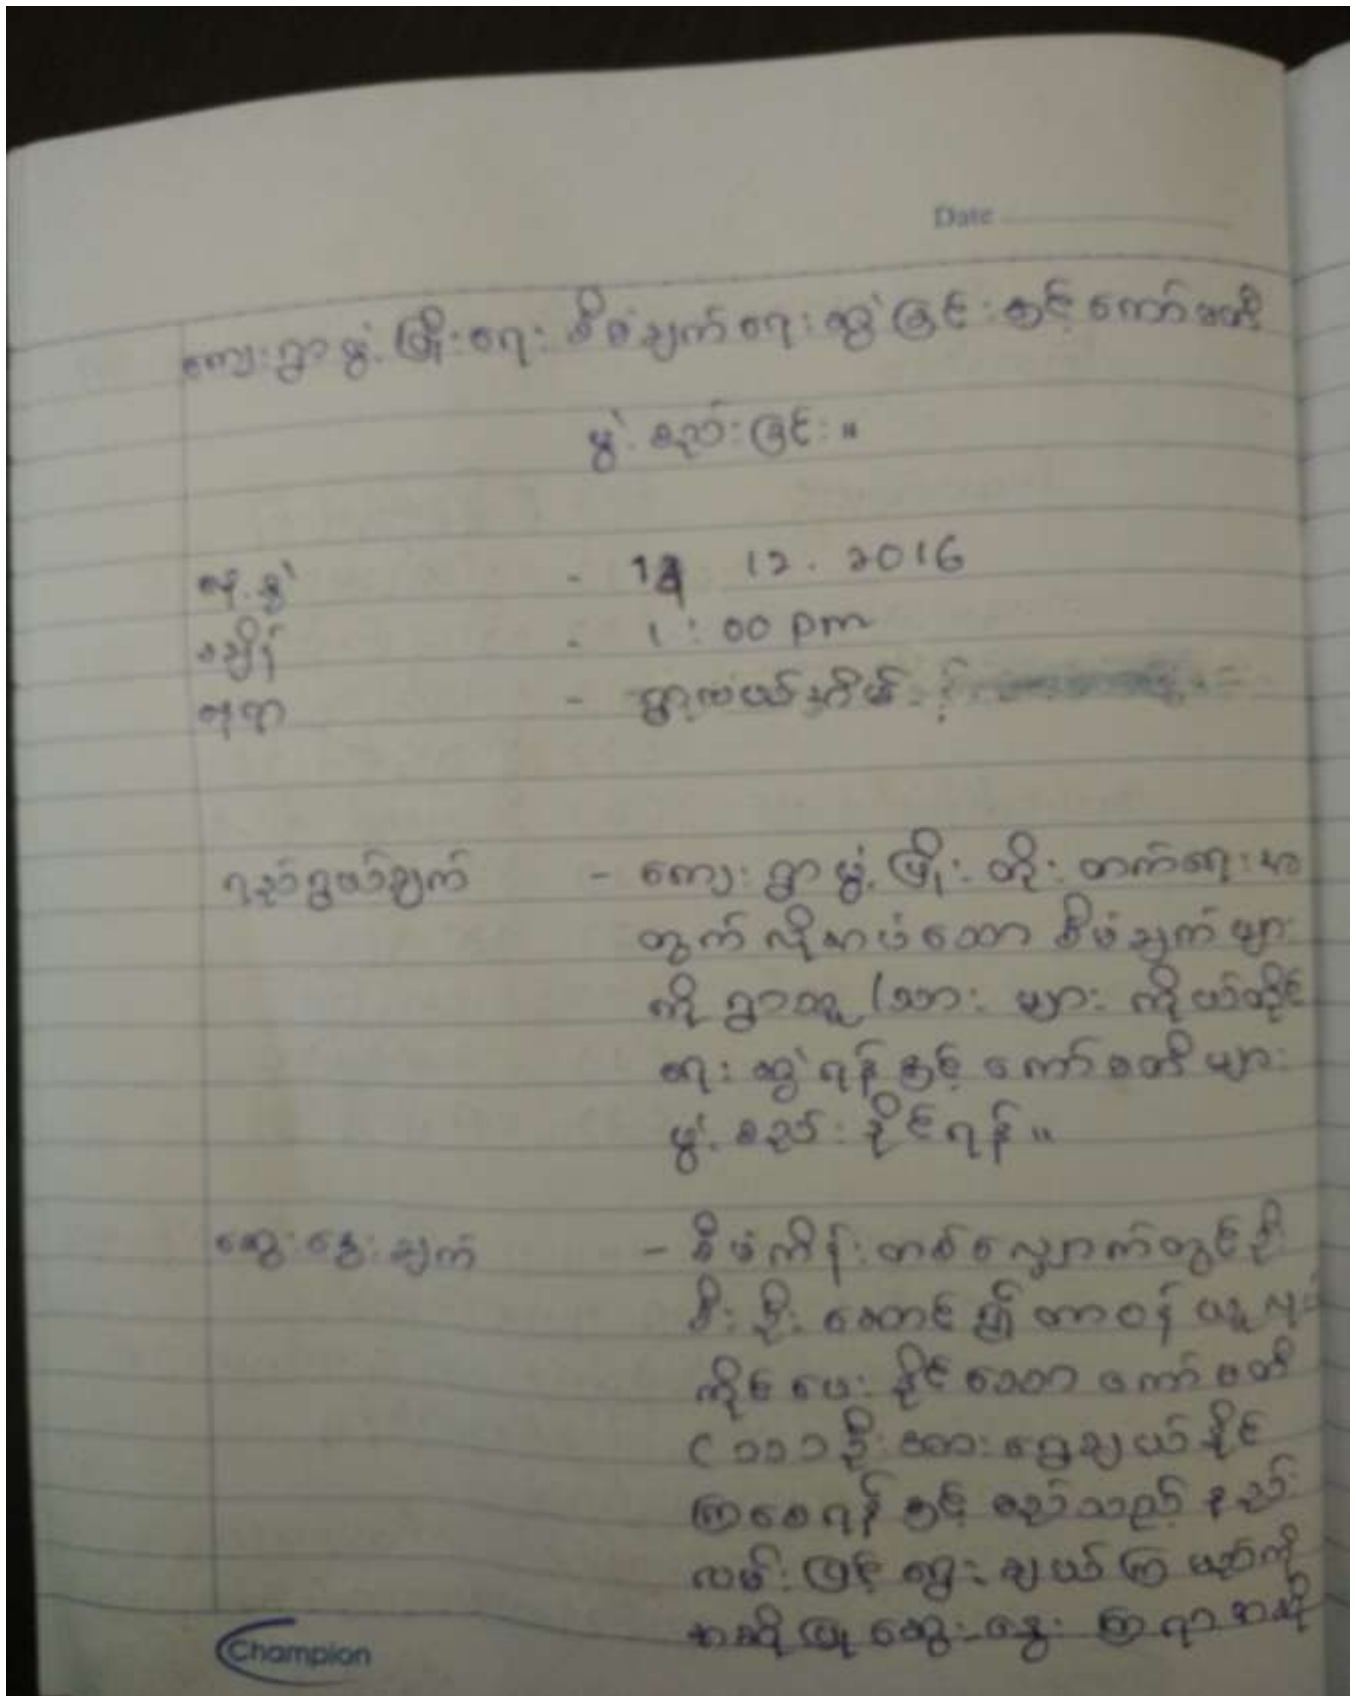 Date
ကျေးရွာဖွံ့ဖြိုးရေး စီမံချက်ရေးဆွဲခြင်းနှင့် ကော်မတီ
ဖွဲ့စည်းခြင်း။
နေ့စွဲ - 12.2016
အချိန် - 1:00 pm
နေရာ - ရွာလယ်
ရည်ရွယ်ချက် - ကျေးရွာဖွံ့ဖြိုးတိုးတက်ရေးအ
တွက် လိုအပ်သော စီမံချက်များ
ကို ရွာသူ/သားများ ကိုယ်တိုင်
ရေးဆွဲရန်နှင့် ကော်မတီများ
ဖွဲ့စည်းနိုင်ရန်။
ဆွေးနွေးချက် - စီမံကိန်းတစ်လျှောက်တွင် ဦး
စီးဦးဆောင်၍ တာဝန်ယူလုပ်
ကိုင်ပေးနိုင်သော ကော်မတီ
(၁၁)ဦးအား ရွေးချယ်နိုင်
ကြစေရန်နှင့် မည်သည့်နည်း
လမ်းဖြင့် ရွေးချယ်ကြမည်ကို
အဆိုပြုဆွေးနွေးကြရာ အဆို
Champion